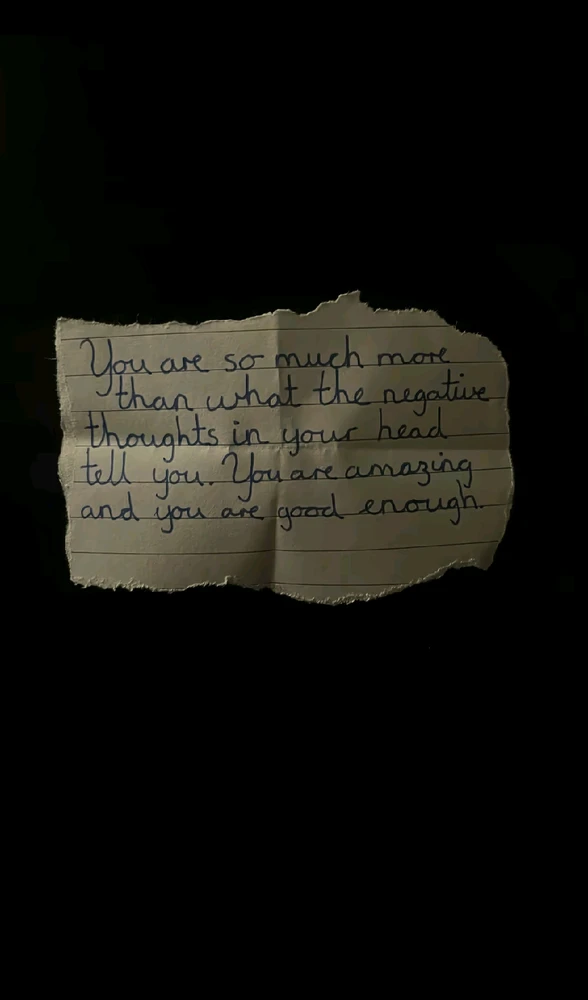 You are so much more
than what the negative
thoughts in your head
tell you. You are amazing
and you are good enough.